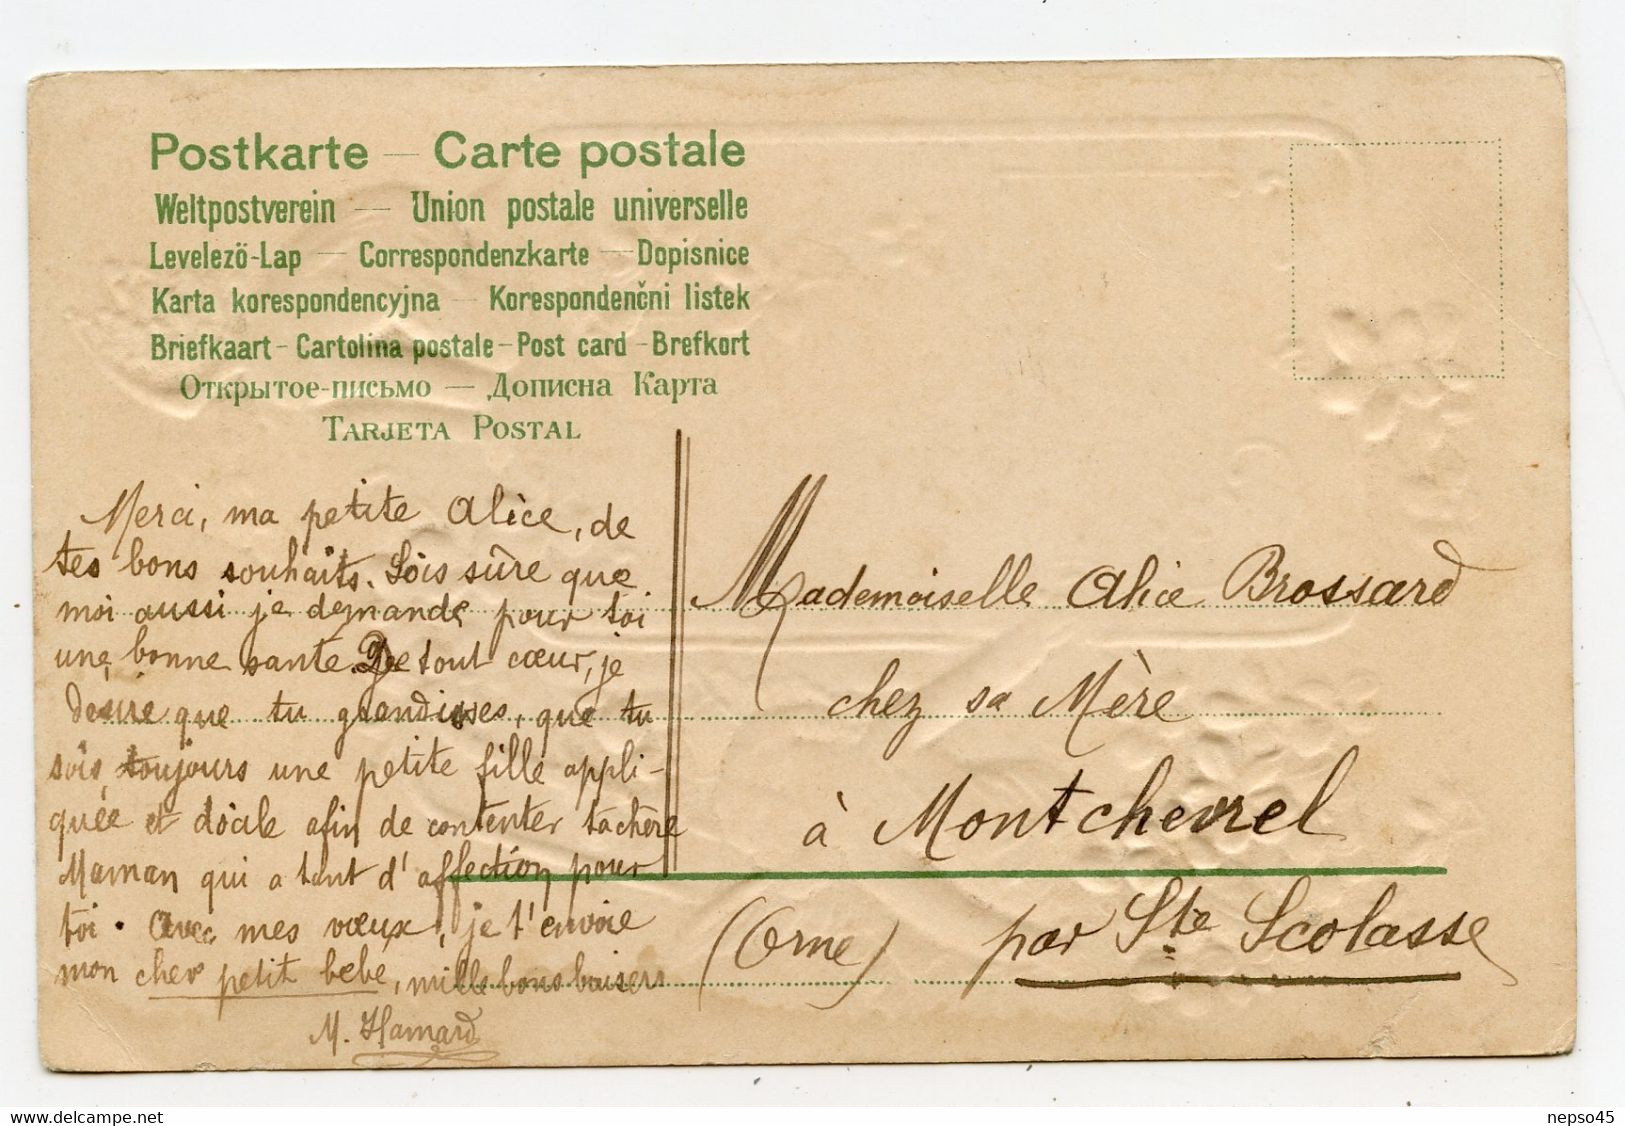 Postkarte — Carte postale
Weltpostverein — Union postale universelle
Levelező-Lap — Correspondenzkarte — Dopisnice
Karta korespondencyjna — Korespondenčni listek
Briefkaart - Cartolina postale - Post card - Brefkort
Открытое-письмо — Дописна Карта
TARJETA POSTAL
Merci, ma petite Alice, de
tes bons souhaits. Sois sûre que
moi aussi je demande pour toi
une bonne santé. De tout cœur, je
désire que tu grandisses, que tu
sois toujours une petite fille appli-
quée et docile afin de contenter ta chère
Maman qui a tant d'affection pour
toi. Avec mes vœux, je t'envoie
mon cher petit bébé, mille bons baisers
M. Hamard
Mademoiselle Alice Brossard
chez sa Mère
à Montchevrel
(Orne) par Ste Scolasse
www.delcampe.net
nepso45